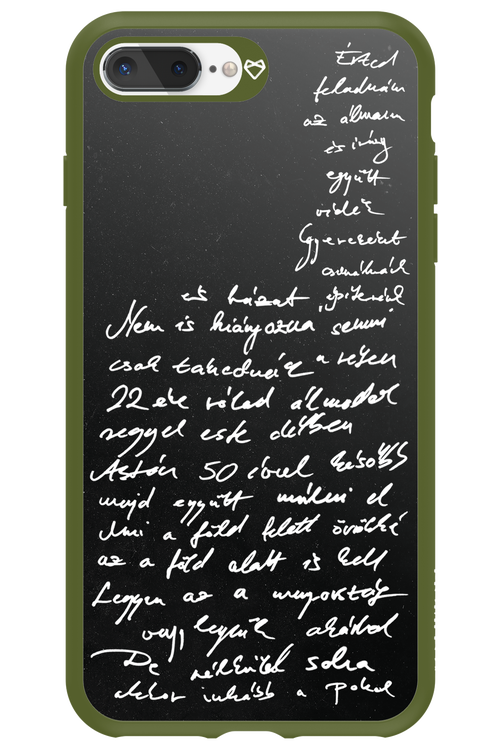 Érted
feladnám
az álmaim
és így
együtt
vidék
Gyerekeket
csinálnánk
és házat építenénk
Nem is hiányozna semmi
csak takednék a veled
22 éve rólad álmodok
reggel este délben
Aztán 50 évvel később
majd együtt múlni el
Ami a föld felett örökké
az a föld alatt is kell
Legyen az a mennyország
vagy legyünk akárhol
De nélküled soha
akkor inkább a Pokol